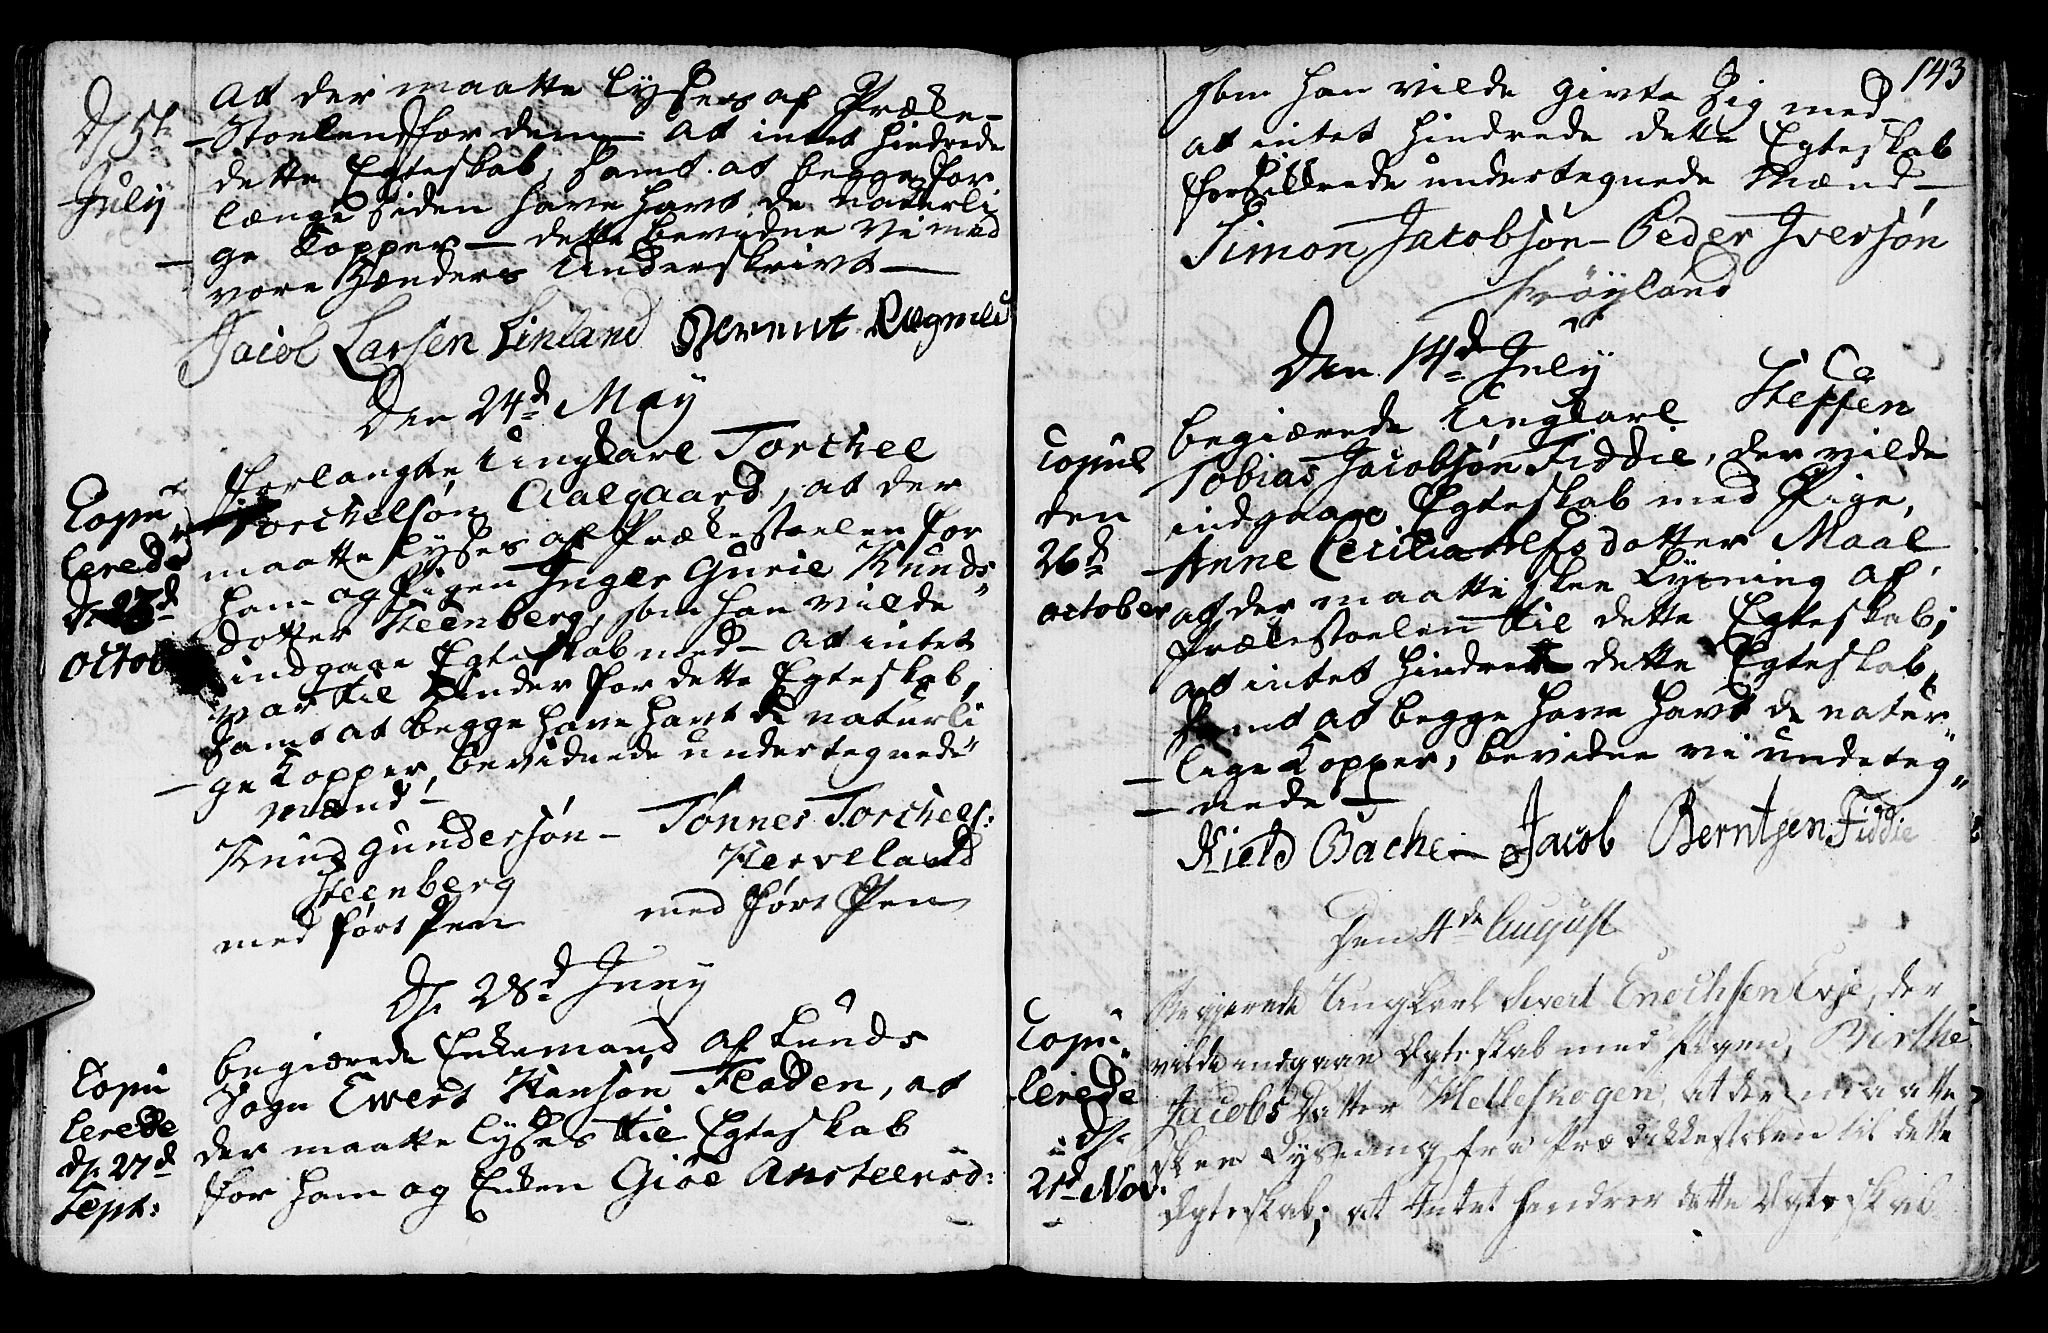 D. 5te
July
At der maatte lyses af Præke-
-Stoelen for dem - At intet hindrede
dette Egteskab, samt at begge for
længe siden have havt de naturli
ge Kopper - dette bevidne vi med
vore Hænders Underskrivt -
Jacob Larsen Linland Bernnt Rægneld
Den 24d May
Copu
lerede
d. 23d
octob
forlangte Ungkarl Torchel
Torchelsøn Aalgaard, at der
maatte lyses af Prækestoelen for
ham og Pigen Inger Gurie Knuds
dotter Steenberg, som han vilde
indgaae Egteskab med - At intet
var til Hinder for dette Egteskab,
samt at begge have havt de naturli
ge Kopper, bevidnede undertegnede
Mænd -
Knud Gundersøn - Tønnes Torchels:
Steenberg Herveland
med ført Pen med ført Pen
D. 28d Juny
Copu
lerede
d. 27d
Sept:
begiærede Enkemand af Lunds
Sogn Ewert Hansøn Fladen, at
der maatte lyses til Egteskab
for ham og Enken Gioe Ansteensd:
143
som han vilde givte sig med
at intet hindrede dette Egteskab
forsikkrede undertegnede Mænd -
Simon Jacobsøn - Peder Iversøn
Frøyland
Den 14d July
Copul
den
26d
october
begiærede Ungkarl Steffen
Tobias Jacobsøn Fiddie, der vilde
indgaae Egteskab med Pige,
Anne Cecilia dotter Maal
at der maatte skee Lysning af
Prækestoelen til dette Egteskab;
at intet hindrede dette Egteskab,
samt at begge have havt de natur
lige Kopper, bevidne vi undeteg
nede -
Kield Bache - Jacob Berntsen Fiddie
Den 4de August
Copu
lerede
d.
21d Nov.
Begjerede Ungkarl Sivert Enochsen Evje, der
vilde indgaae Egteskab med Pigen, Birthe
Jacobs Datter Helleskogen, at der maatte
skee Lysning fra Prædikkestolen til dette
Egteskab; at Intet hindrer dette Egteskab